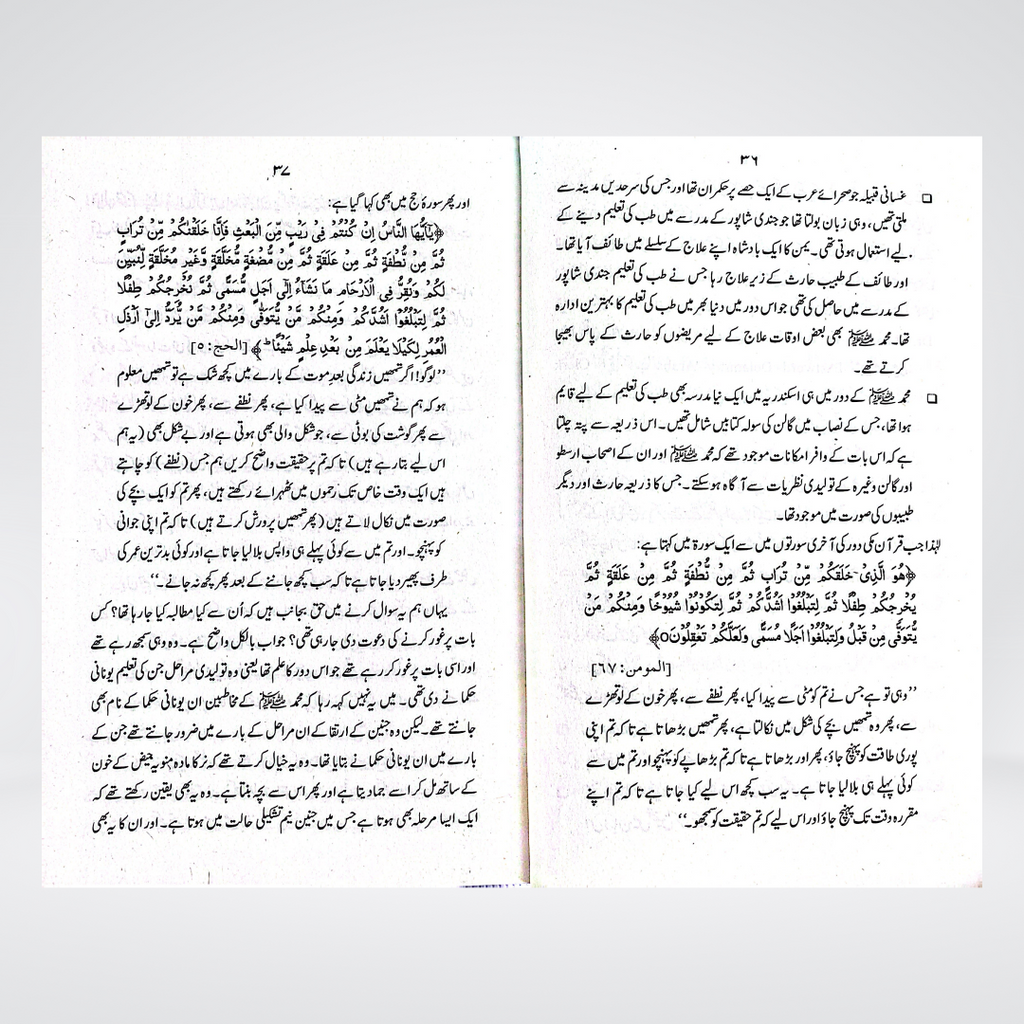 ۳۶
□ غسانی قبیلہ جو صحرائے عرب کے ایک حصے پر حکمران تھا اور جس کی سرحدیں مدینہ سے
ملتی تھیں، وہی زبان بولتا تھا جو جندی شاپور کے مدرسے میں طب کی تعلیم دینے کے
لیے استعمال ہوتی تھی۔ یمن کا ایک بادشاہ اپنے علاج کے سلسلے میں طائف آیا تھا۔
اور طائف کے طبیب حارث کے زیر علاج رہا جس نے طب کی تعلیم جندی شاپور
کے مدرسے میں حاصل کی تھی جو اس دور میں دنیا بھر میں طب کی تعلیم کا بہترین ادارہ
تھا۔ محمد ﷺ بھی بعض اوقات علاج کے لیے مریضوں کو حارث کے پاس بھیجا
کرتے تھے۔
□ محمد ﷺ کے دور میں ہی اسکندریہ میں ایک نیا مدرسہ بھی طب کی تعلیم کے لیے قایم
ہوا تھا، جس کے نصاب میں گالن کی سولہ کتابیں شامل تھیں۔ اس ذریعہ سے پتہ چلتا
ہے کہ اس بات کے وافر امکانات موجود تھے کہ محمد ﷺ اور ان کے اصحاب ارسطو
اور گالن وغیرہ کے تولیدی نظریات سے آگاہ ہو سکتے۔ جس کا ذریعہ حارث اور دیگر
طبیبوں کی صورت میں موجود تھا۔
لہٰذا جب قرآن مکی دور کی آخری سورتوں میں سے ایک سورۃ میں کہتا ہے:
﴿هُوَ الَّذِیْ خَلَقَكُمْ مِّنْ تُرَابٍ ثُمَّ مِنْ نُّطْفَةٍ ثُمَّ مِنْ عَلَقَةٍ ثُمَّ
یُخْرِجُكُمْ طِفْلًا ثُمَّ لِتَبْلُغُوْا اَشُدَّكُمْ ثُمَّ لِتَكُوْنُوْا شُیُوْخًا وَمِنْكُمْ مَنْ
یُّتَوَفّٰی مِنْ قَبْلُ وَلِتَبْلُغُوْا اَجَلًا مُّسَمًّی وَلَعَلَّكُمْ تَعْقِلُوْنَ○﴾
[المومن: ۶۷]
’’وہی تو ہے جس نے تم کو مٹی سے پیدا کیا، پھر نطفے سے، پھر خون کے لوتھڑے
سے، پھر وہ تمھیں بچے کی شکل میں نکالتا ہے، پھر تمھیں بڑھاتا ہے تا کہ تم اپنی
پوری طاقت کو پہنچ جاؤ، پھر اور بڑھاتا ہے تا کہ تم بڑھاپے کو پہنچو اور تم میں سے
کوئی پہلے ہی بلا لیا جاتا ہے۔ یہ سب کچھ اس لیے کیا جاتا ہے تا کہ تم اپنے
مقررہ وقت تک پہنچ جاؤ اور اس لیے کہ تم حقیقت کو سمجھو۔‘‘
۳۷
اور پھر سورۂ حج میں بھی کہا گیا ہے:
﴿یٰۤاَیُّهَا النَّاسُ اِنْ كُنْتُمْ فِیْ رَیْبٍ مِّنَ الْبَعْثِ فَاِنَّا خَلَقْنٰكُمْ مِّنْ تُرَابٍ
ثُمَّ مِنْ نُّطْفَةٍ ثُمَّ مِنْ عَلَقَةٍ ثُمَّ مِنْ مُّضْغَةٍ مُّخَلَّقَةٍ وَّغَیْرِ مُخَلَّقَةٍ لِّنُبَیِّنَ
لَكُمْ وَنُقِرُّ فِی الْاَرْحَامِ مَا نَشَآءُ اِلٰۤی اَجَلٍ مُّسَمًّی ثُمَّ نُخْرِجُكُمْ طِفْلًا
ثُمَّ لِتَبْلُغُوْۤا اَشُدَّكُمْ وَمِنْكُمْ مَّنْ یُّتَوَفّٰی وَمِنْكُمْ مَّنْ یُّرَدُّ اِلٰۤی اَرْذَلِ
الْعُمُرِ لِكَیْلَا یَعْلَمَ مِنْ بَعْدِ عِلْمٍ شَیْئًا ؕ﴾ [الحج: ۵]
’’لوگو! اگر تمھیں زندگی بعد موت کے بارے میں کچھ شک ہے تو تمھیں معلوم
ہو کہ ہم نے تمھیں مٹی سے پیدا کیا ہے، پھر نطفے سے، پھر خون کے لوتھڑے
سے پھر گوشت کی بوٹی سے، جو شکل والی بھی ہوتی ہے اور بے شکل بھی (یہ ہم
اس لیے بتا رہے ہیں) تا کہ تم پر حقیقت واضح کریں ہم جس (نطفے) کو چاہتے
ہیں ایک وقت خاص تک رحموں میں ٹھہرائے رکھتے ہیں، پھر تم کو ایک بچے کی
صورت میں نکال لاتے ہیں (پھر تمھیں پرورش کرتے ہیں) تا کہ تم اپنی جوانی
کو پہنچو۔ اور تم میں سے کوئی پہلے ہی واپس بلا لیا جاتا ہے اور کوئی بدترین عمر کی
طرف پھیر دیا جاتا ہے تا کہ سب کچھ جاننے کے بعد پھر کچھ نہ جانے۔‘‘
یہاں ہم یہ سوال کرنے میں حق بجانب ہیں کہ اُن سے کیا مطالبہ کیا جا رہا تھا؟ کس
بات پر غور کرنے کی دعوت دی جا رہی تھی؟ جواب بالکل واضح ہے۔ وہ وہی سمجھ رہے تھے
اور اسی بات پر غور کر رہے تھے جو اس دور کا علم تھا یعنی وہ تولیدی مراحل جن کی تعلیم یونانی
حکما نے دی تھی۔ میں یہ نہیں کہہ رہا کہ محمد ﷺ کے مخاطبین ان یونانی حکما کے نام بھی
جانتے تھے۔ لیکن وہ جنین کے ارتقا کے ان مراحل کے بارے میں ضرور جانتے تھے جن کے
بارے میں ان یونانی حکما نے بتایا تھا۔ وہ یہ خیال کرتے تھے کہ نر کا مادہ منویہ حیض کے خون
کے ساتھ مل کر اسے جما دیتا ہے اور پھر اس سے بچہ بنتا ہے۔ وہ یہ بھی یقین رکھتے تھے کہ
ایک ایسا مرحلہ بھی ہوتا ہے جس میں جنین نیم تشکیلی حالت میں ہوتا ہے۔ اور ان کا یہ بھی